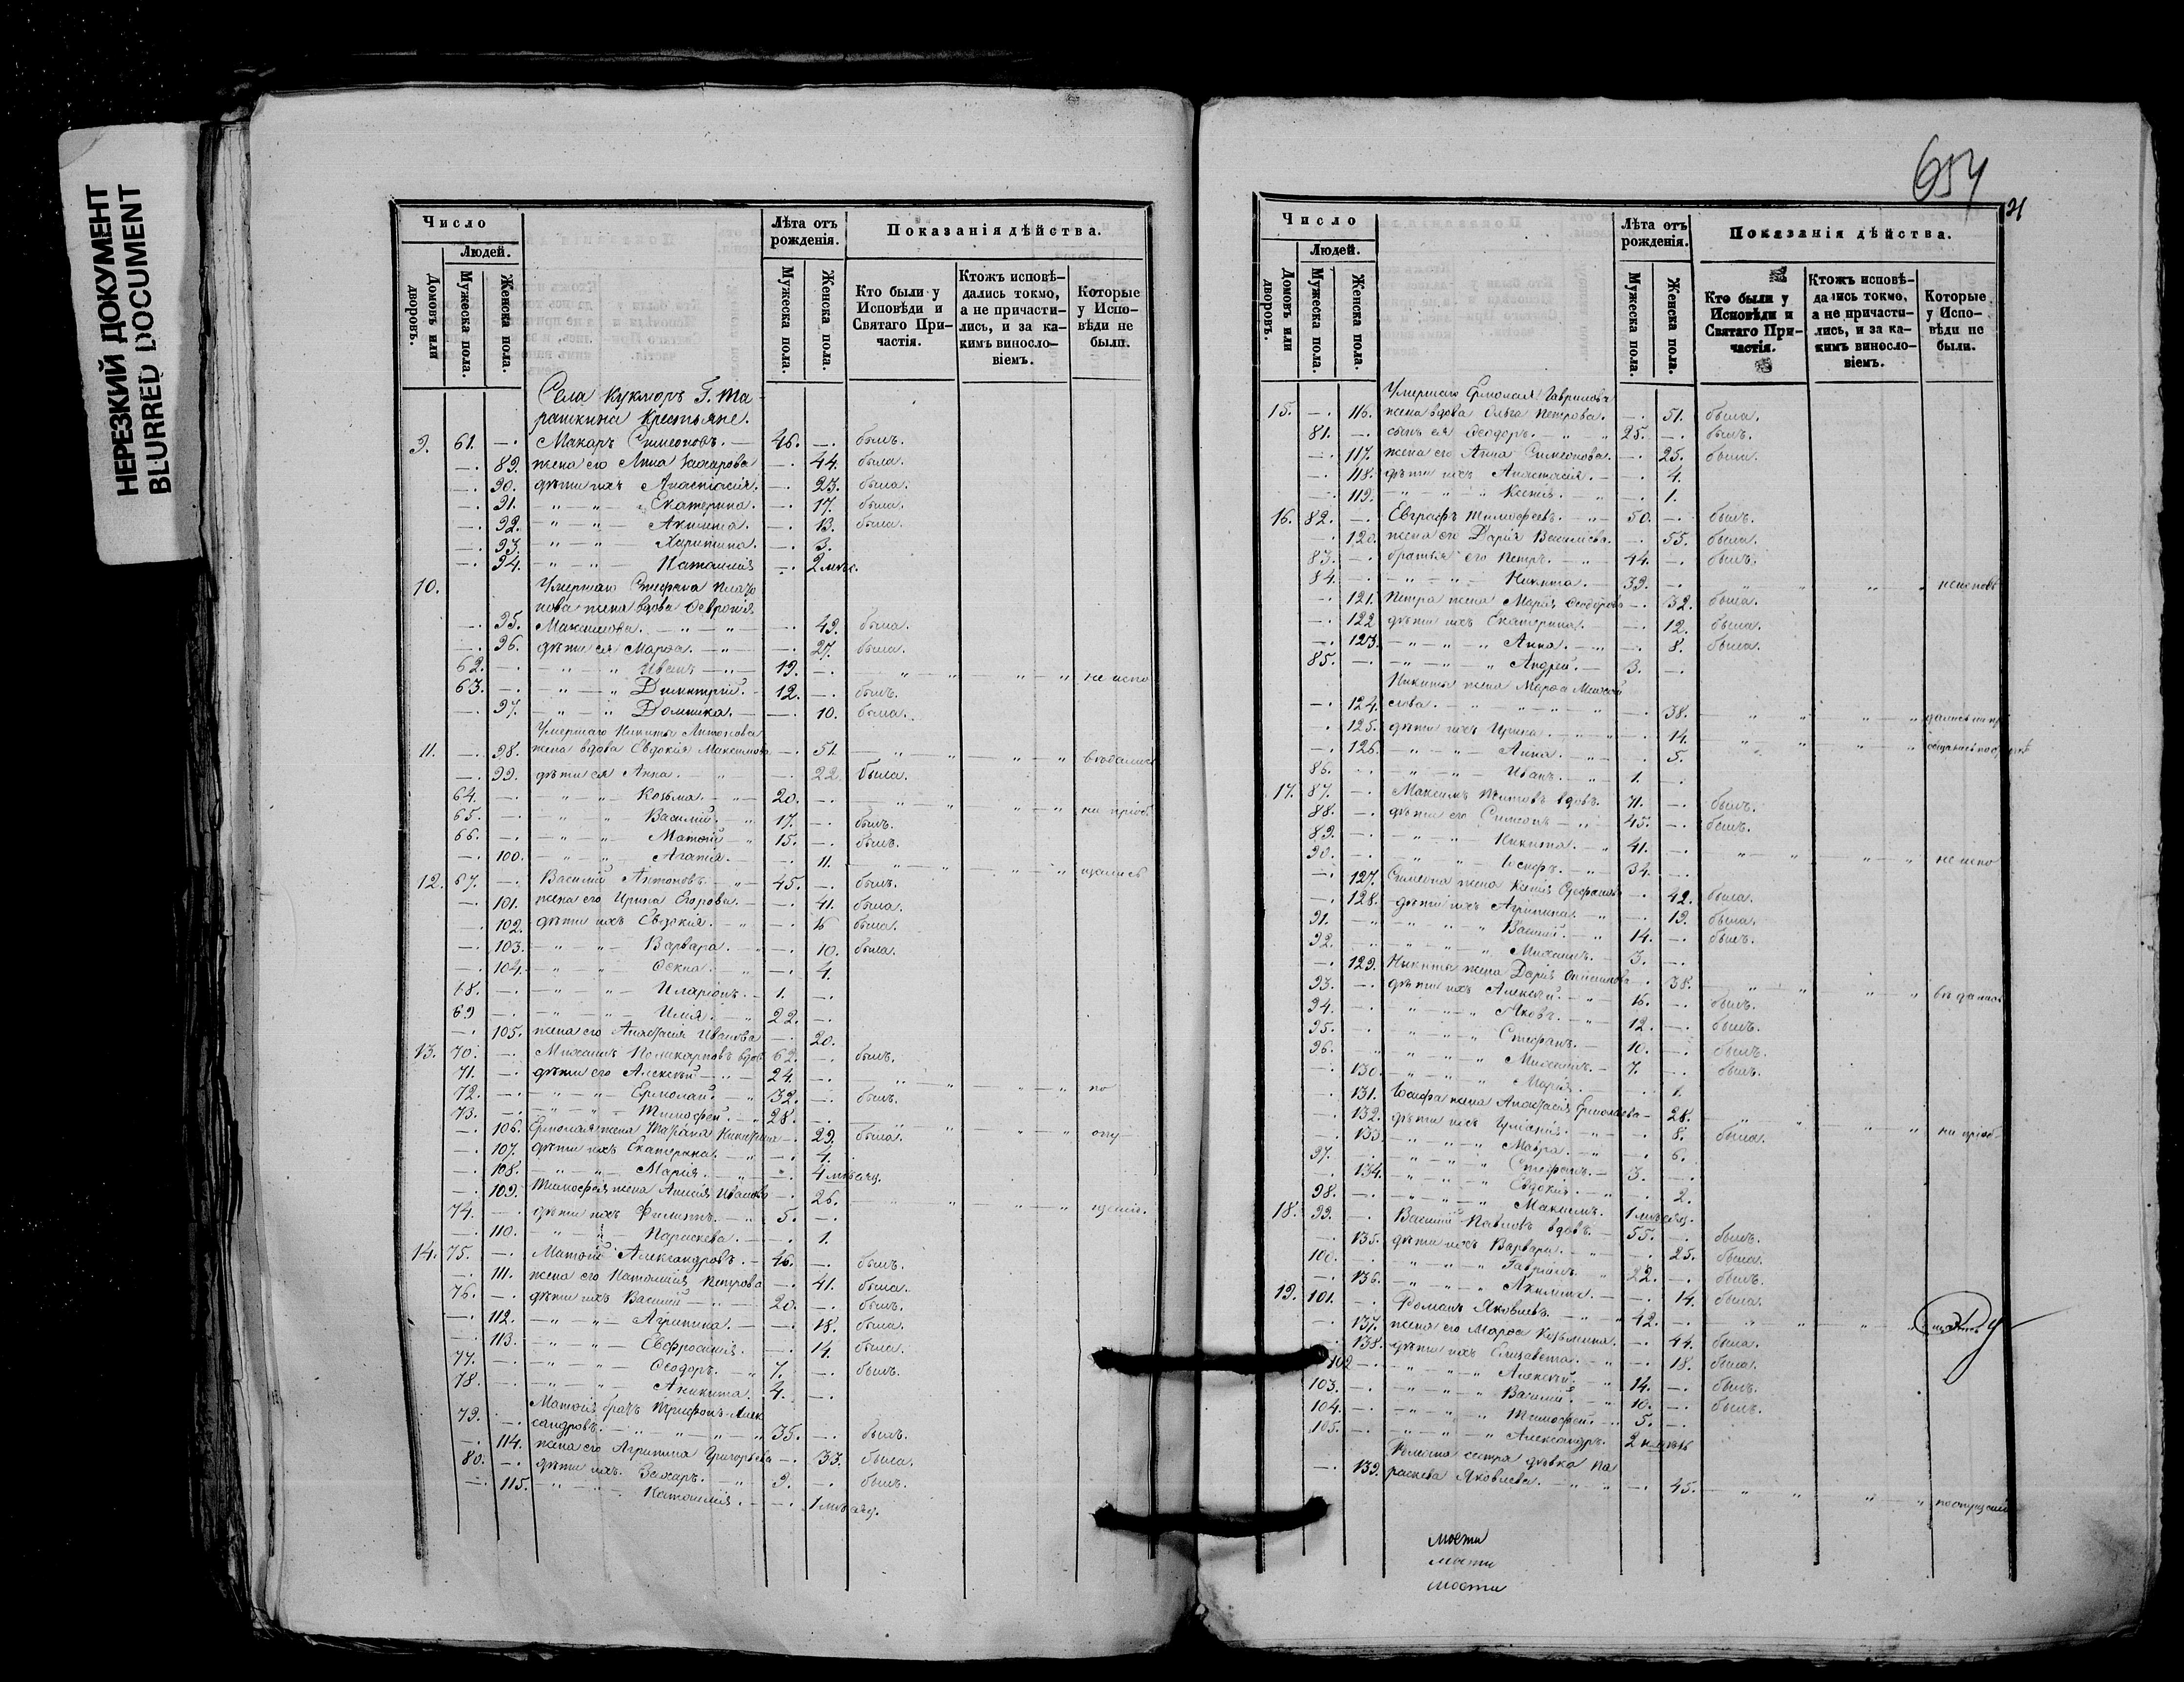 НЕРЕЗКИЙ ДОКУМЕНТ
BLURRED DOCUMENT
Число
Людей.
Домовъ или дворовъ.
Мужеска пола.
Женска пола.
Лѣта отъ рожденія.
Мужеска пола.
Женска пола.
Показанія дѣйства.
Кто были у Исповѣди и Святаго Причастія.
Ктожъ исповѣ-
дались токмо,
а не причасти-
лись, и за ка-
кимъ винословіемъ.
Которые
у Испо-
вѣди не
были.
Села Кукморъ Г. Та
рашкина Крестьяне.
9. 61. —. Макаръ Симеоновъ. — 46. —. былъ.
—. 89. жена его Анна Захарова —. 44. была.
—. 90. дѣти ихъ Анастасія. —. 23. была.
—. 91. " — " — " Екатерина. —. 17. была.
—. 92. — " — " — Акилина. —. 13. была.
—. 93. — " — " — Харитина. —. 3.
—. 94. — " — " — Наталия —. 2 мѣс.
10. Умершаго Стефана
нова жена вдова Феврония
—. 95. Максимова. — " — " — —. 49. была.
—. 96. дѣти ея Марѳа. — " — —. 27. была.
62. —. " — " Иванъ — " — 19. —. " — " " — " не испо
63. —. — " — " Димитрій. — 12. —. былъ.
—. 97. — " — " Домника. — —. 10. была.
Умершаго Никиты Антонова
11. —. 98. жена вдова Евдокія Максимова —. 51. — " " — " — " вѣдались
—. 99. дѣти ея Анна. — " —. 22. была.
64. —. — " — " — Козьма. — " — 20. —. — " — " " — " ни пріоб
65. —. — " " Василій. — " 17. —. былъ.
66. —. — " — " Матѳій — " 15. —. былъ.
—. 100. — " — " Агапія. — —. 11. " — " — " — " щались
12. 67. —. Василій Антоновъ. — " — 45. —. былъ.
—. 101. жена его Ирина Егорова. — —. 41. была.
—. 102. дѣти ихъ Евдокія. — " —. 16 была.
—. 103. — " — " — Варвара. — " —. 10. была.
—. 104. — " — " Ѳекла. — " —. 4.
68. —. — " — " — Иларіонъ. — 1. —.
69 —. — " — " — Илія. — " 22. —.
—. 105. жена его Анастасія Иванова —. 20.
13. 70. —. Михаилъ Поликарповъ вдов 62. —. былъ.
71. —. дѣти его Алексѣй — " — 24. —. — " " " — " по
72. —. — " — " — Ермолай. — " 32. —. былъ.
73. —. — " — " — Тимофей. — " 28. —.
—. 106. Ермолая жена Татіана —. 29. была. " — " опу
—. 107. дѣти ихъ Екатерина. — " —. 4.
—. 108. — " — " — Марія. — " —. 4 мѣсяц.
—. 109. Тимофея жена Анисія Иванова —. 26. — " " — " щенію.
74. —. дѣти ихъ Филиппъ. — " 5. —.
—. 110. — " — " Параскева. — —. 1.
14. 75. —. Матѳій Александровъ. — 46. —. былъ.
—. 111. жена его Наталия Петрова —. 41. была.
76. —. дѣти ихъ Василій — " — 20. —. былъ.
—. 112. — " — " — Агрипина. — —. 18. была.
—. 113. — " — " — Евфросинія. — —. 14. была.
77. —. — " — " — Ѳеодоръ. — " 7. —. былъ.
78. —. — " — " — Аникита. 4. —.
Матѳія братъ Трифонъ Алек
79. —. сандровъ. — " — " — " — " 35. —. былъ.
—. 114. жена его Агрипина Григорьева —. 33. была.
80. —. дѣти ихъ Захаръ. — " 9. —. былъ.
—. 115. — " — " — Наталия. — —. 1 мѣсяц.
654
21
Число
Людей.
Домовъ или дворовъ.
Мужеска пола.
Женска пола.
Лѣта отъ рожденія.
Мужеска пола.
Женска пола.
Показанія дѣйства.
Кто были у Исповѣди и Святаго Причастія.
Ктожъ исповѣ-
дались токмо,
а не причасти-
лись, и за ка-
кимъ винословіемъ.
Которые
у Испо-
вѣди не
были.
Умершаго Ермолая Гаврилова
15. —. 116. жена вдова Ольга Петрова. —. 51. была.
81. —. сынъ ея Ѳеодоръ. — " — " 25. —. былъ.
—. 117. жена его Анна Симеонова. —. 25. была.
—. 118. дѣти ихъ Анастасія. — —. 4.
—. 119. — " — " — " Ксенія. — " —. 1.
16. 82. —. Евграфъ Тимофеевъ. — " — 50. —. былъ.
—. 120. жена его Дарія Васильева. —. 55. была.
83. —. братья его Петръ. — " 44. —. былъ.
84. —. — " — " — Никита. — 39. —. " " " неисповѣ
—. 121. Петра жена Марія Ѳеодорова —. 32. была.
—. 122 дѣти ихъ Екатерина. — —. 12. была.
—. 123. — " — " — " Анна. — " —. 8. была.
85. —. — " — " — " Андрей. — 3. —.
Никиты жена Марѳа
—. 124. — " — " — " —. 38. — " " " — " дались ни пр
—. 125. дѣти ихъ Ирина. — " — " —. 14. " " " — "
—. 126. — " — " — Анна. — " —. 5.
86. —. — " — " — Иванъ. — " 1. —.
17. 87. —. Максимъ Титовъ вдовъ. 71. —. былъ.
88. —. дѣти его Симеонъ — " — 45. —. былъ.
89. —. — " — " Никита. — " 41. —. " " " — " не испо
90. —. " — " Іосифъ. — " 34. —.
—. 127. Симеона жена Ксенія —. 42. была.
—. 128. дѣти ихъ Агрипина. — " —. 19. была.
91. — " — " — " — " Василій. — " 14. —. былъ.
92. — " — " — " — " Михаилъ. — 3. —.
—. 129. Никиты жена Дарія —. 38. — " " " — " вѣдались
93. —. дѣти ихъ Алексѣй. — " 16. —. былъ.
94. —. " — " — " Яковъ. — " — 12. —. былъ.
95. —. " — " — " Стефанъ. — 10. —. былъ.
96. " " — " — " Михаилъ. — 7. —. былъ.
—. 130 — " — " — " Марія. — —. 1.
—. 131. Іосифа жена Анастасія Ермолаева — 28. — " " " — " ни пріоб
—. 132. дѣти ихъ — " —. 8. была.
—. 133 — " — " — " Мавра. — " —. 6.
97. —. " — " — " Стефанъ. — 3. —.
—. 134. " — " — " Евдокія. — " —. 2.
98. —. — " — " — " Максимъ. 1 мѣсяц.
18. 99. —. Василій Павловъ вдовъ. — 55. —. былъ.
—. 135. дѣти ихъ Варвара. — " —. 25. была.
100. —. — " — " — " Гавріилъ. — " 22. —. былъ.
—. 136. — " — " — " Акилина. — —. 14. была.
19. 101. —. Романъ Яковлевъ. — " — " 42. —. " " " — " щались
—. 137. жена его Марѳа Козьмина. —. 44. была.
—. 138. дѣти ихъ Елисавета. — " —. 18. была.
102 —. — " — " — " Алексѣй. — " 14. —. былъ.
103. —. — " — " — " Василій. — " 10. —. былъ.
104. —. — " — " — " Тимофей. — " 5. —.
105. —. — " — " — " Александръ. 2
Романа сестра дѣвка Па
—. 139. раскева Яковлева. — " — " —. 45. — " " " — " поопущенію
мости
мости
мости